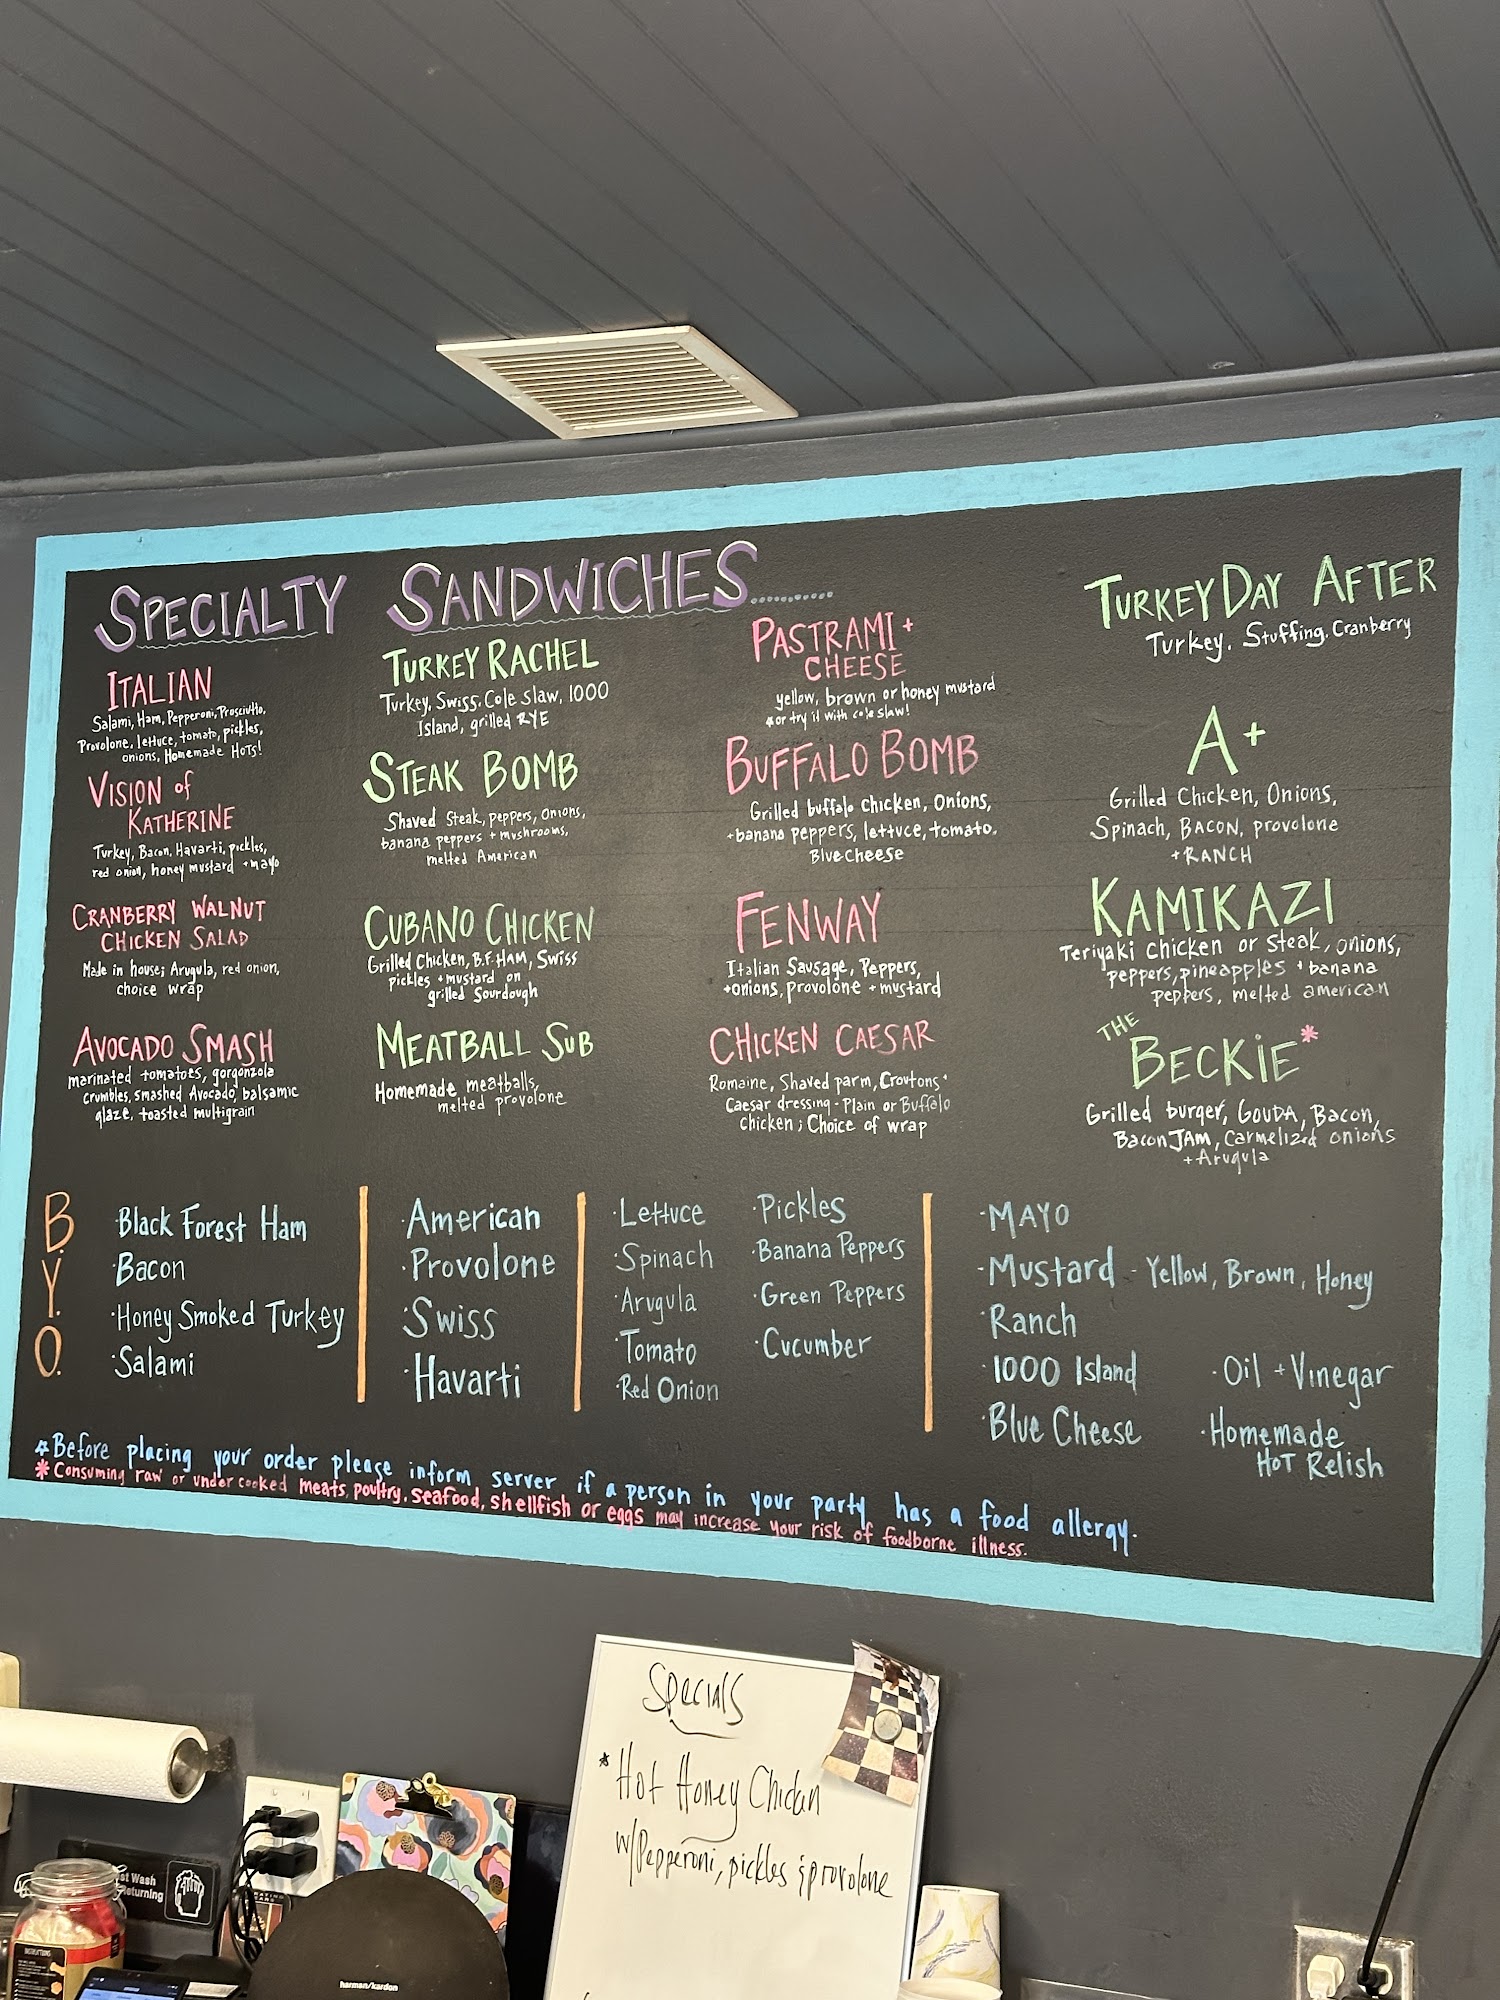 SPECIALTY SANDWICHES..........
ITALIAN
Salami, Ham, Pepperoni, Prosciutto,
Provolone, lettuce, tomato, pickles,
onions, Homemade HOTS!
VISION of
KATHERINE
Turkey, Bacon, Havarti, pickles,
red onion, honey mustard + mayo
CRANBERRY WALNUT
CHICKEN SALAD
Made in house; Arugula, red onion,
choice wrap
AVOCADO SMASH
marinated tomatoes, gorgonzola
crumbles, smashed Avocado, balsamic
glaze, toasted multigrain
TURKEY RACHEL
Turkey, Swiss, Cole slaw, 1000
Island, grilled RYE
STEAK BOMB
Shaved Steak, peppers, onions,
banana peppers + mushrooms,
melted American
CUBANO CHICKEN
Grilled Chicken, B.F. HAM, Swiss
pickles + mustard on
grilled Sourdough
MEATBALL SUB
Homemade meatballs,
melted provolone
PASTRAMI +
CHEESE
yellow, brown or honey mustard
*or try it with cole slaw!
BUFFALO BOMB
Grilled buffalo chicken, Onions,
+banana peppers, lettuce, tomato.
Blue cheese
FENWAY
Italian Sausage, Peppers,
+onions, provolone + mustard
CHICKEN CAESAR
Romaine, Shaved parm, Croutons +
Caesar dressing - Plain or Buffalo
chicken; Choice of wrap
TURKEY DAY AFTER
Turkey, Stuffing, Cranberry
A+
Grilled Chicken, Onions,
Spinach, BACON, provolone
+ RANCH
KAMIKAZI
Teriyaki Chicken or Steak, onions,
peppers, pineapples + banana
peppers, melted american
THE
BECKIE*
Grilled burger, GOUDA, Bacon,
Bacon JAM, Carmelized onions
+ Arugula
B.Y.O.
·Black Forest Ham
·Bacon
·Honey Smoked Turkey
·Salami
·American
·Provolone
·Swiss
·Havarti
·Lettuce
·Spinach
·Arugula
·Tomato
·Red Onion
·Pickles
·Banana Peppers
·Green Peppers
·Cucumber
·MAYO
·Mustard - Yellow, Brown, Honey
·Ranch
·1000 Island
·Blue Cheese
·Oil + Vinegar
·Homemade
HOT Relish
*Before placing your order please inform server if a person in your party has a food allergy.
*Consuming raw or undercooked meats, poultry, seafood, shellfish or eggs may increase your risk of foodborne illness.
Specials
*Hot Honey Chicken
w/Pepperoni, pickles & provolone
Wash
Returning
INSTRUCTIONS
harman/kardon